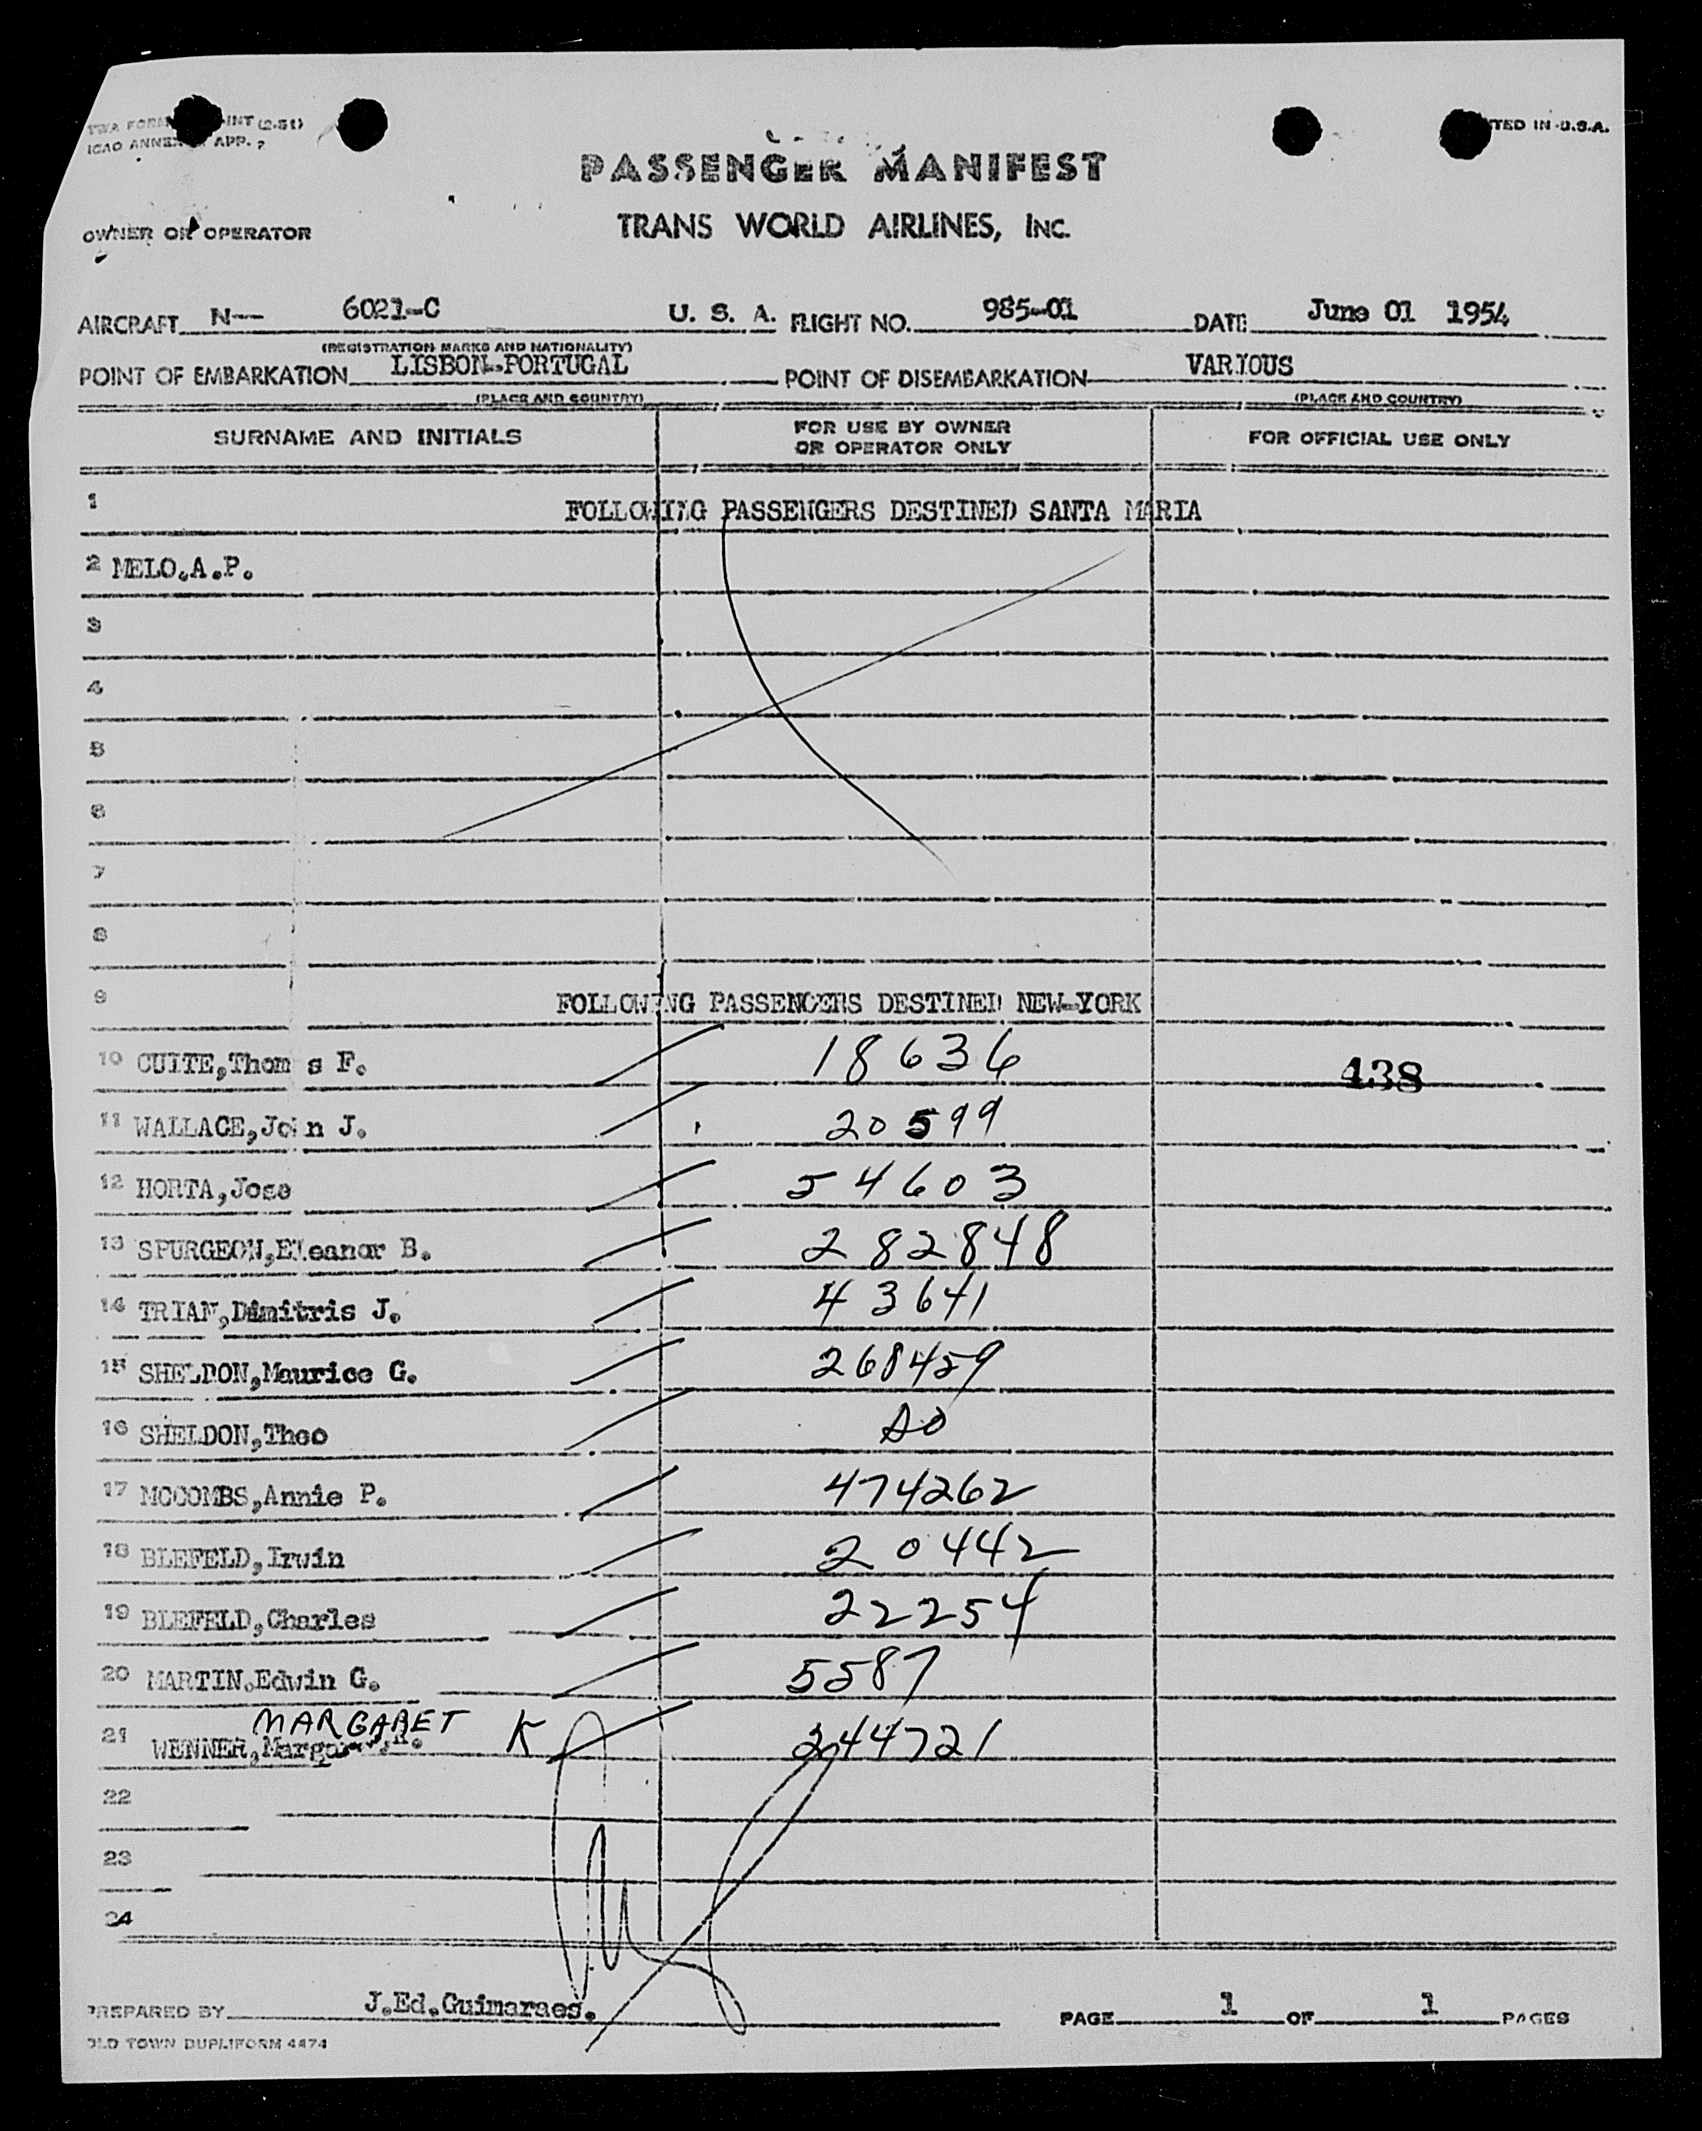 TWA FORM INT (2-51)
ICAO ANNEX APP. 7
TED IN U.S.A.
PASSENGER MANIFEST
OWNER OR OPERATOR TRANS WORLD AIRLINES, INC.
AIRCRAFT N-- 6021-C U. S. A. FLIGHT NO. 985-01 DATE June 01 1954
(REGISTRATION MARKS AND NATIONALITY)
POINT OF EMBARKATION LISBON-PORTUGAL POINT OF DISEMBARKATION VARIOUS
(PLACE AND COUNTRY) (PLACE AND COUNTRY)
SURNAME AND INITIALS FOR USE BY OWNER OR OPERATOR ONLY FOR OFFICIAL USE ONLY
1 FOLLOWING PASSENGERS DESTINED SANTA MARIA
2 MELO.A.P.
3
4
5
6
7
8
9 FOLLOWING PASSENGERS DESTINED NEW-YORK
10 CUITE,Thom s F. 18636 438
11 WALLACE,John J. 20599
12 HORTA,Jose 54603
13 SPURGEON,Eleanor B. 282848
14 TRIAN,Dimitris J. 43641
15 SHELDON,Maurice G. 268459
16 SHELDON,Theo DO
17 MCCOMBS,Annie P. 474262
18 BLEFELD,Irwin 20442
19 BLEFELD,Charles 22254
20 MARTIN.Edwin G. 5587
MARGARET K
21 WENNER, 244721
22
23
24
PREPARED BY J.Ed.Guimaraes. PAGE 1 OF 1 PAGES
OLD TOWN DUPLIFORM 4474